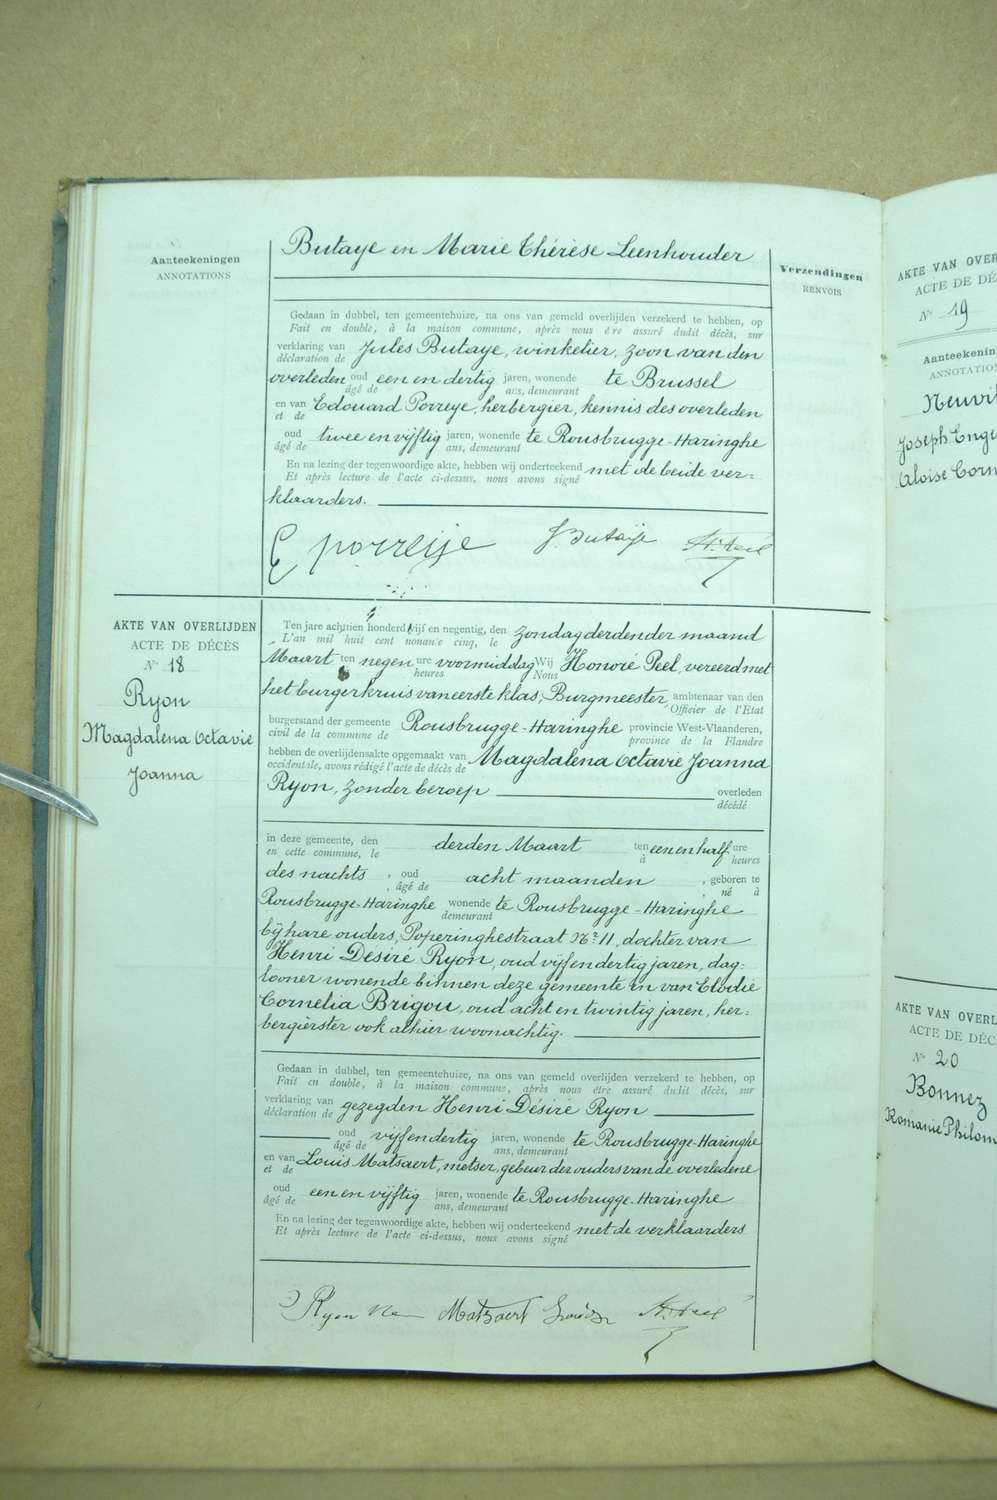 Aanteekeningen
ANNOTATIONS
Butaye en Marie Thérèse Leenhouder
Verzendingen
RENVOIS
Gedaan in dubbel, ten gemeentehuize, na ons van gemeld overlijden verzekerd te hebben, op
Fait en double, à la maison commune, après nous être assuré dudit décès, sur
verklaring van Jules Butaye, winkelier, zoon van den
déclaration de
overleden oud een en dertig jaren, wonende te Brussel
âgé de ans, demeurant
en van Edouard Porreye, herbergier, kennis des overleden
et de
oud twee en vijftig jaren, wonende te Rousbrugge-Haringhe
âgé de ans, demeurant
En na lezing der tegenwoordige akte, hebben wij onderteekend met de beide ver=
Et après lecture de l'acte ci-dessus, nous avons signé
klaarders.
E porreije J. Butaije H. Peel
AKTE VAN OVERLIJDEN
ACTE DE DÉCÈS
N° 18
Ryon
Magdalena Octavie
Joanna
Ten jare achttien honderd vijf en negentig, den zondag derden der maand
L'an mil huit cent nonante cinq, le
Maart ten negen ure voormiddag Wij Honoré Peel, vereerd met
heures Nous
het burgerkruis van eerste klas, Burgmeester, ambtenaar van den
Officier de l'Etat
burgerstand der gemeente Rousbrugge-Haringhe provincie West-Vlaanderen,
civil de la commune de province de la Flandre
hebben de overlijdensakte opgemaakt van Magdalena Octavie Joanna
occidentale, avons rédigé l'acte de décès de
Ryon, zonder beroep overleden
décédé
in deze gemeente, den derden Maart ten een en half ure
en cette commune, le à heures
des nachts, oud acht maanden, geboren te
, âgé de , né à
Rousbrugge-Haringhe wonende te Rousbrugge-Haringhe
demeurant
bij hare ouders, Poperinghestraat Nr. 11, dochter van
Henri Désiré Ryon, oud vijf en dertig jaren, dag=
looner wonende binnen deze gemeente en van Elodie
Cornelia Brigou, oud acht en twintig jaren, her=
bergierster ook alhier woonachtig.
Gedaan in dubbel, ten gemeentehuize, na ons van gemeld overlijden verzekerd te hebben, op
Fait en double, à la maison commune, après nous être assuré dudit décès, sur
verklaring van gezegden Henri Désiré Ryon
déclaration de
oud vijf en dertig jaren, wonende te Rousbrugge-Haringhe
âgé de ans, demeurant
en van Louis Matsaert, metser, gebeur der ouders van de overledene
et de
oud een en vijftig jaren, wonende te Rousbrugge-Haringhe
âgé de ans, demeurant
En na lezing der tegenwoordige akte, hebben wij onderteekend met de verklaarders
Et après lecture de l'acte ci-dessus, nous avons signé
Ryon Matsaert H. Peel
AKTE VAN OVER
ACTE DE DÉ
N° 19
Aanteekenin
ANNOTATION
Neuvi
Joseph Enge
Aloise Corn
AKTE VAN OVERL
ACTE DE DÉC
N° 20
Bonnez
Romanie Philom